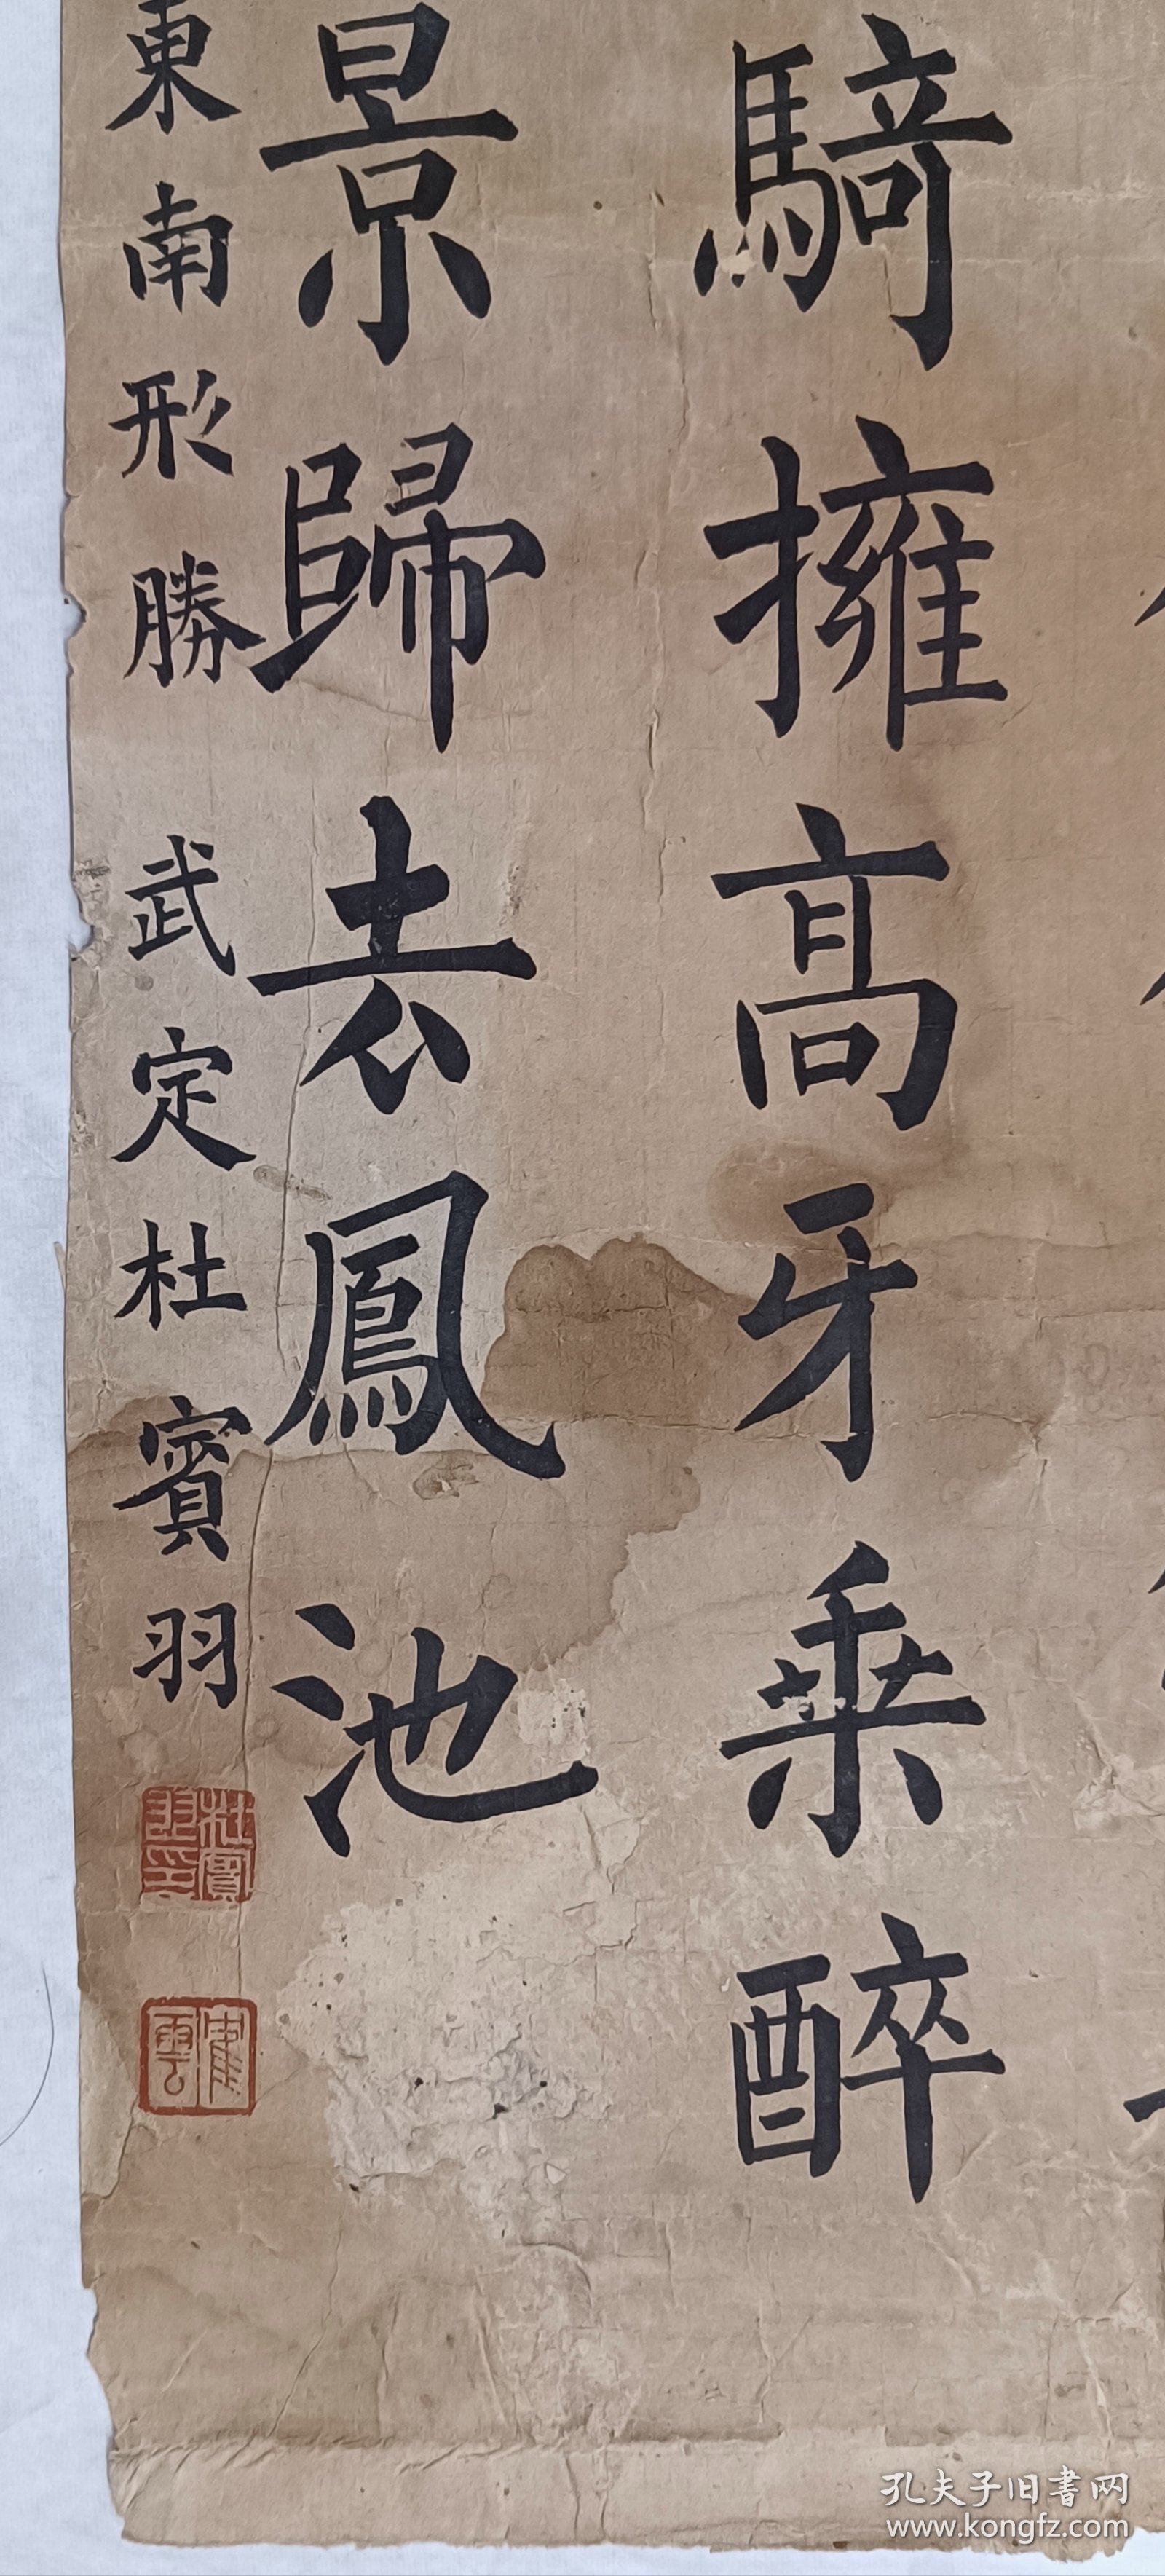 騎擁高牙乗醉
景歸去鳳池
東南形勝 武定杜賓羽
杜賓羽印
孔夫子旧書网
www.kongfz.com